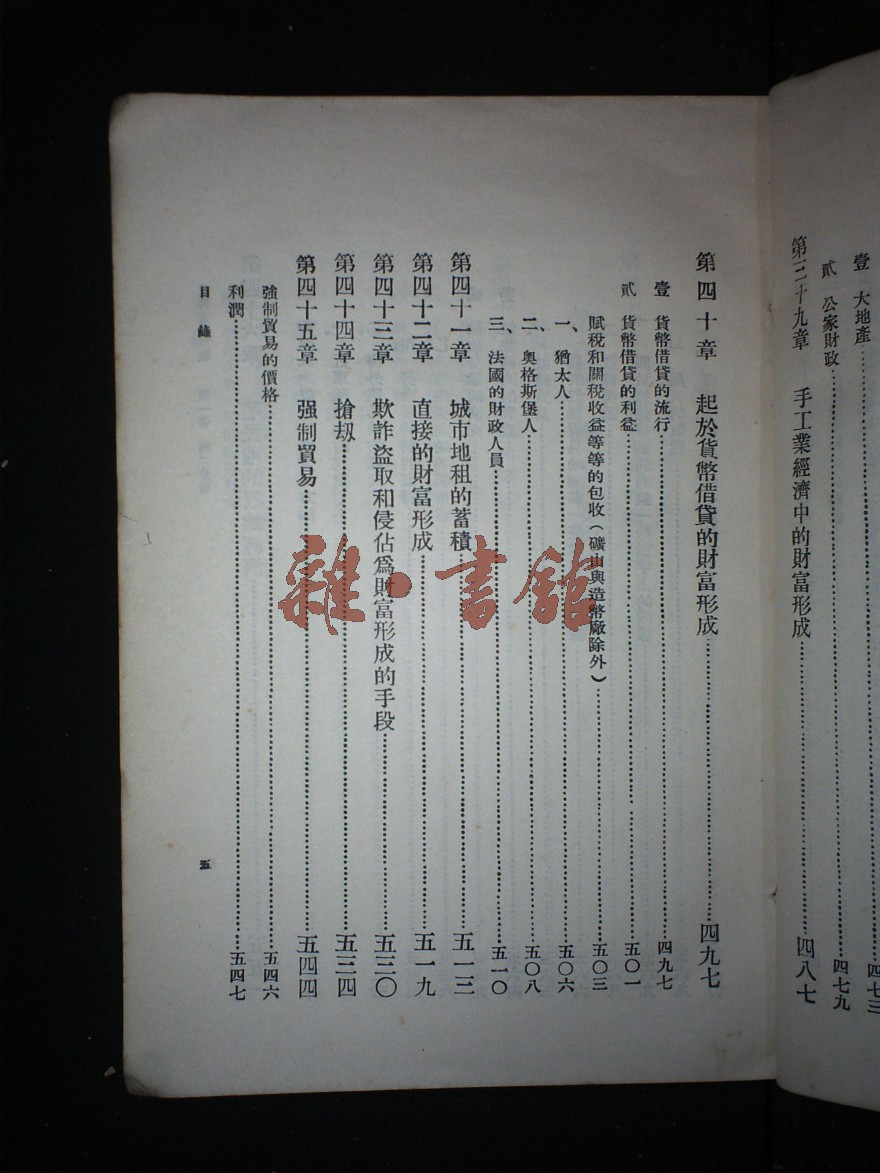 壹 大地產………四七三
貳 公家財政………四七九
第三十九章 手工業經濟中的財富形成………四八七
第四十章 起於貨幣借貸的財富形成………四九七
壹 貨幣借貸的流行………四九七
貳 貨幣借貸的利益………五〇一
賦稅和關稅收益等等的包收（礦山與造幣廠除外）………五〇三
一、猶太人………五〇六
二、奧格斯堡人………五〇八
三、法國的財政人員………五一〇
第四十一章 城市地租的蓄積………五一三
第四十二章 直接的財富形成………五一九
第四十三章 欺詐盜取和侵佔爲財富形成的手段………五三〇
第四十四章 搶刼………五三四
第四十五章 强制貿易………五四四
強制貿易的價格………五四六
利潤………五四七
目錄 五
雜·書館